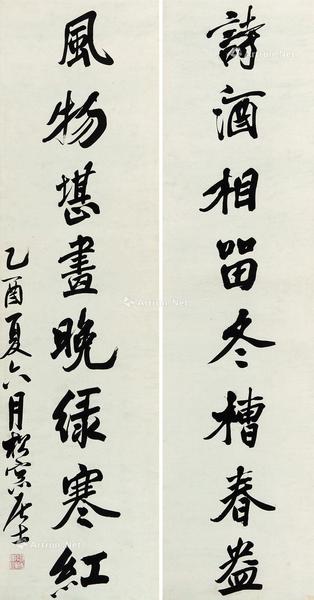 詩酒相留冬槽春盎
風物堪畫晚緑寒紅
乙酉夏六月松窗居士
Artron.Net